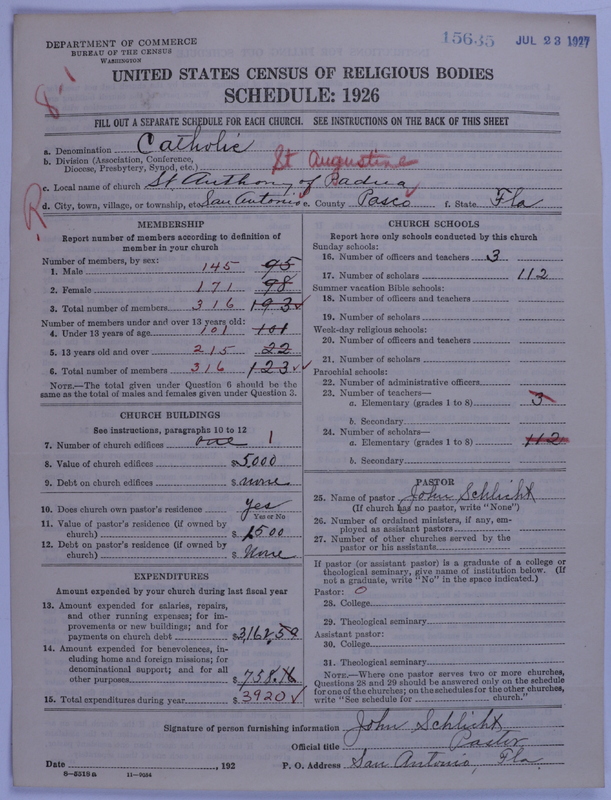 DEPARTMENT OF COMMERCE
BUREAU OF THE CENSUS
WASHINGTON
15635 JUL 23 1927
8-1
UNITED STATES CENSUS OF RELIGIOUS BODIES
SCHEDULE: 1926
FILL OUT A SEPARATE SCHEDULE FOR EACH CHURCH. SEE INSTRUCTIONS ON THE BACK OF THIS SHEET
a. Denomination Catholic
b. Division (Association, Conference,
Diocese, Presbytery, Synod, etc.) St Augustine
c. Local name of church St Anthony of Padua
d. City, town, village, or township, etc. San Antonio e. County Pasco f. State Fla
R
MEMBERSHIP
Report number of members according to definition of
member in your church
Number of members, by sex:
1. Male 145 95
2. Female 171 98
3. Total number of members 316 193
Number of members under and over 13 years old:
4. Under 13 years of age 101 101
5. 13 years old and over 215 22
6. Total number of members 316 123
NOTE.—The total given under Question 6 should be
the same as the total of males and females given under Question 3.
CHURCH BUILDINGS
See instructions, paragraphs 10 to 12
7. Number of church edifices one 1
8. Value of church edifices $5000
9. Debt on church edifices $none
10. Does church own pastor's residence yes
Yes or No
11. Value of pastor's residence (if owned by
church) $1500
12. Debt on pastor's residence (if owned by
church) $None
EXPENDITURES
Amount expended by your church during last fiscal year
13. Amount expended for salaries, repairs,
and other running expenses; for im-
provements or new buildings; and for
payments on church debt $3162.59
14. Amount expended for benevolences, in-
cluding home and foreign missions; for
denominational support; and for all
other purposes $758.16
15. Total expenditures during year $3920
CHURCH SCHOOLS
Report here only schools conducted by this church
Sunday schools:
16. Number of officers and teachers 3
17. Number of scholars 112
Summer vacation Bible schools:
18. Number of officers and teachers
19. Number of scholars
Week-day religious schools:
20. Number of officers and teachers
21. Number of scholars
Parochial schools:
22. Number of administrative officers
23. Number of teachers—
a. Elementary (grades 1 to 8) 3
b. Secondary
24. Number of scholars—
a. Elementary (grades 1 to 8) 112
b. Secondary
PASTOR
25. Name of pastor John Schlicht
(If church has no pastor, write "None")
26. Number of ordained ministers, if any, em-
ployed as assistant pastors
27. Number of other churches served by the
pastor or his assistants
If pastor (or assistant pastor) is a graduate of a college or
theological seminary, give name of institution below. (If
not a graduate, write "No" in the space indicated.)
Pastor: 0
28. College
29. Theological seminary
Assistant pastor:
30. College
31. Theological seminary
NOTE.—Where one pastor serves two or more churches,
Questions 28 and 29 should be answered only on the schedule
for one of the churches; on the schedules for the other churches,
write "See schedule for church."
Signature of person furnishing information John Schlicht
Official title Pastor
Date , 192 P. O. Address San Antonio, Fla.
8-5518a 11-9054